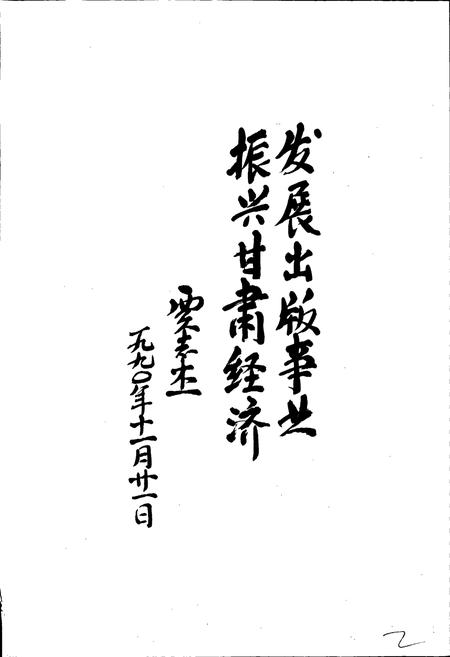 发展出版事业
振兴甘肃经济
贾志杰
一九九〇年十一月廿一日
2